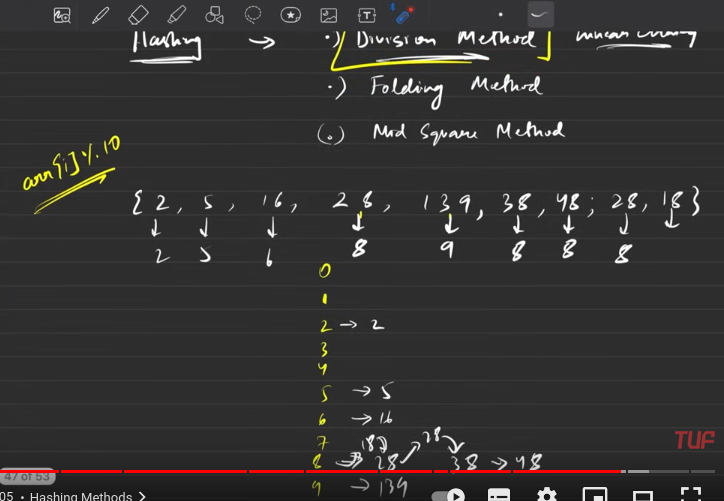 Hashing → .) Division Method
.) Folding Method
(.) Mid Square Method
arr[i] % 10
{2, 5, 16, 28, 139, 38, 48, 28, 18}
2 5 6 8 9 8 8 8
0
1
2 → 2
3
4
5 → 5
6 → 16
7
18 28
8 → 28 38 → 48
9 → 139
TUF
47 of 53
05 • Hashing Methods >